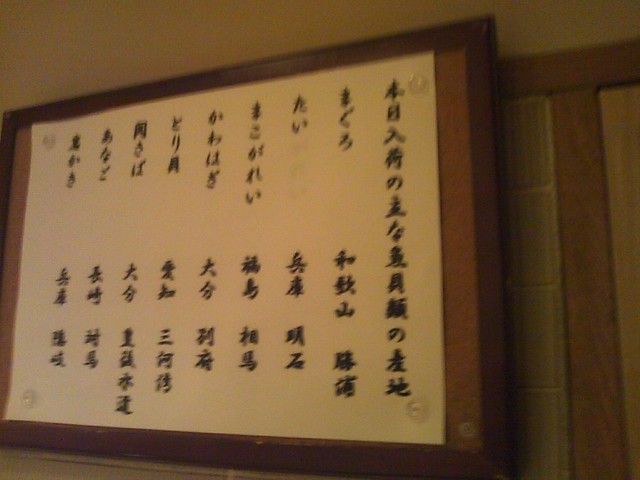 本日入荷の主な魚貝類の産地
まぐろ 和歌山 勝浦
たい 兵庫 明石
まこがれい 福島 相馬
かわはぎ 大分 別府
とり貝 愛知 三河湾
関さば 大分 豊後水道
あなご 長崎 対馬
かき 兵庫